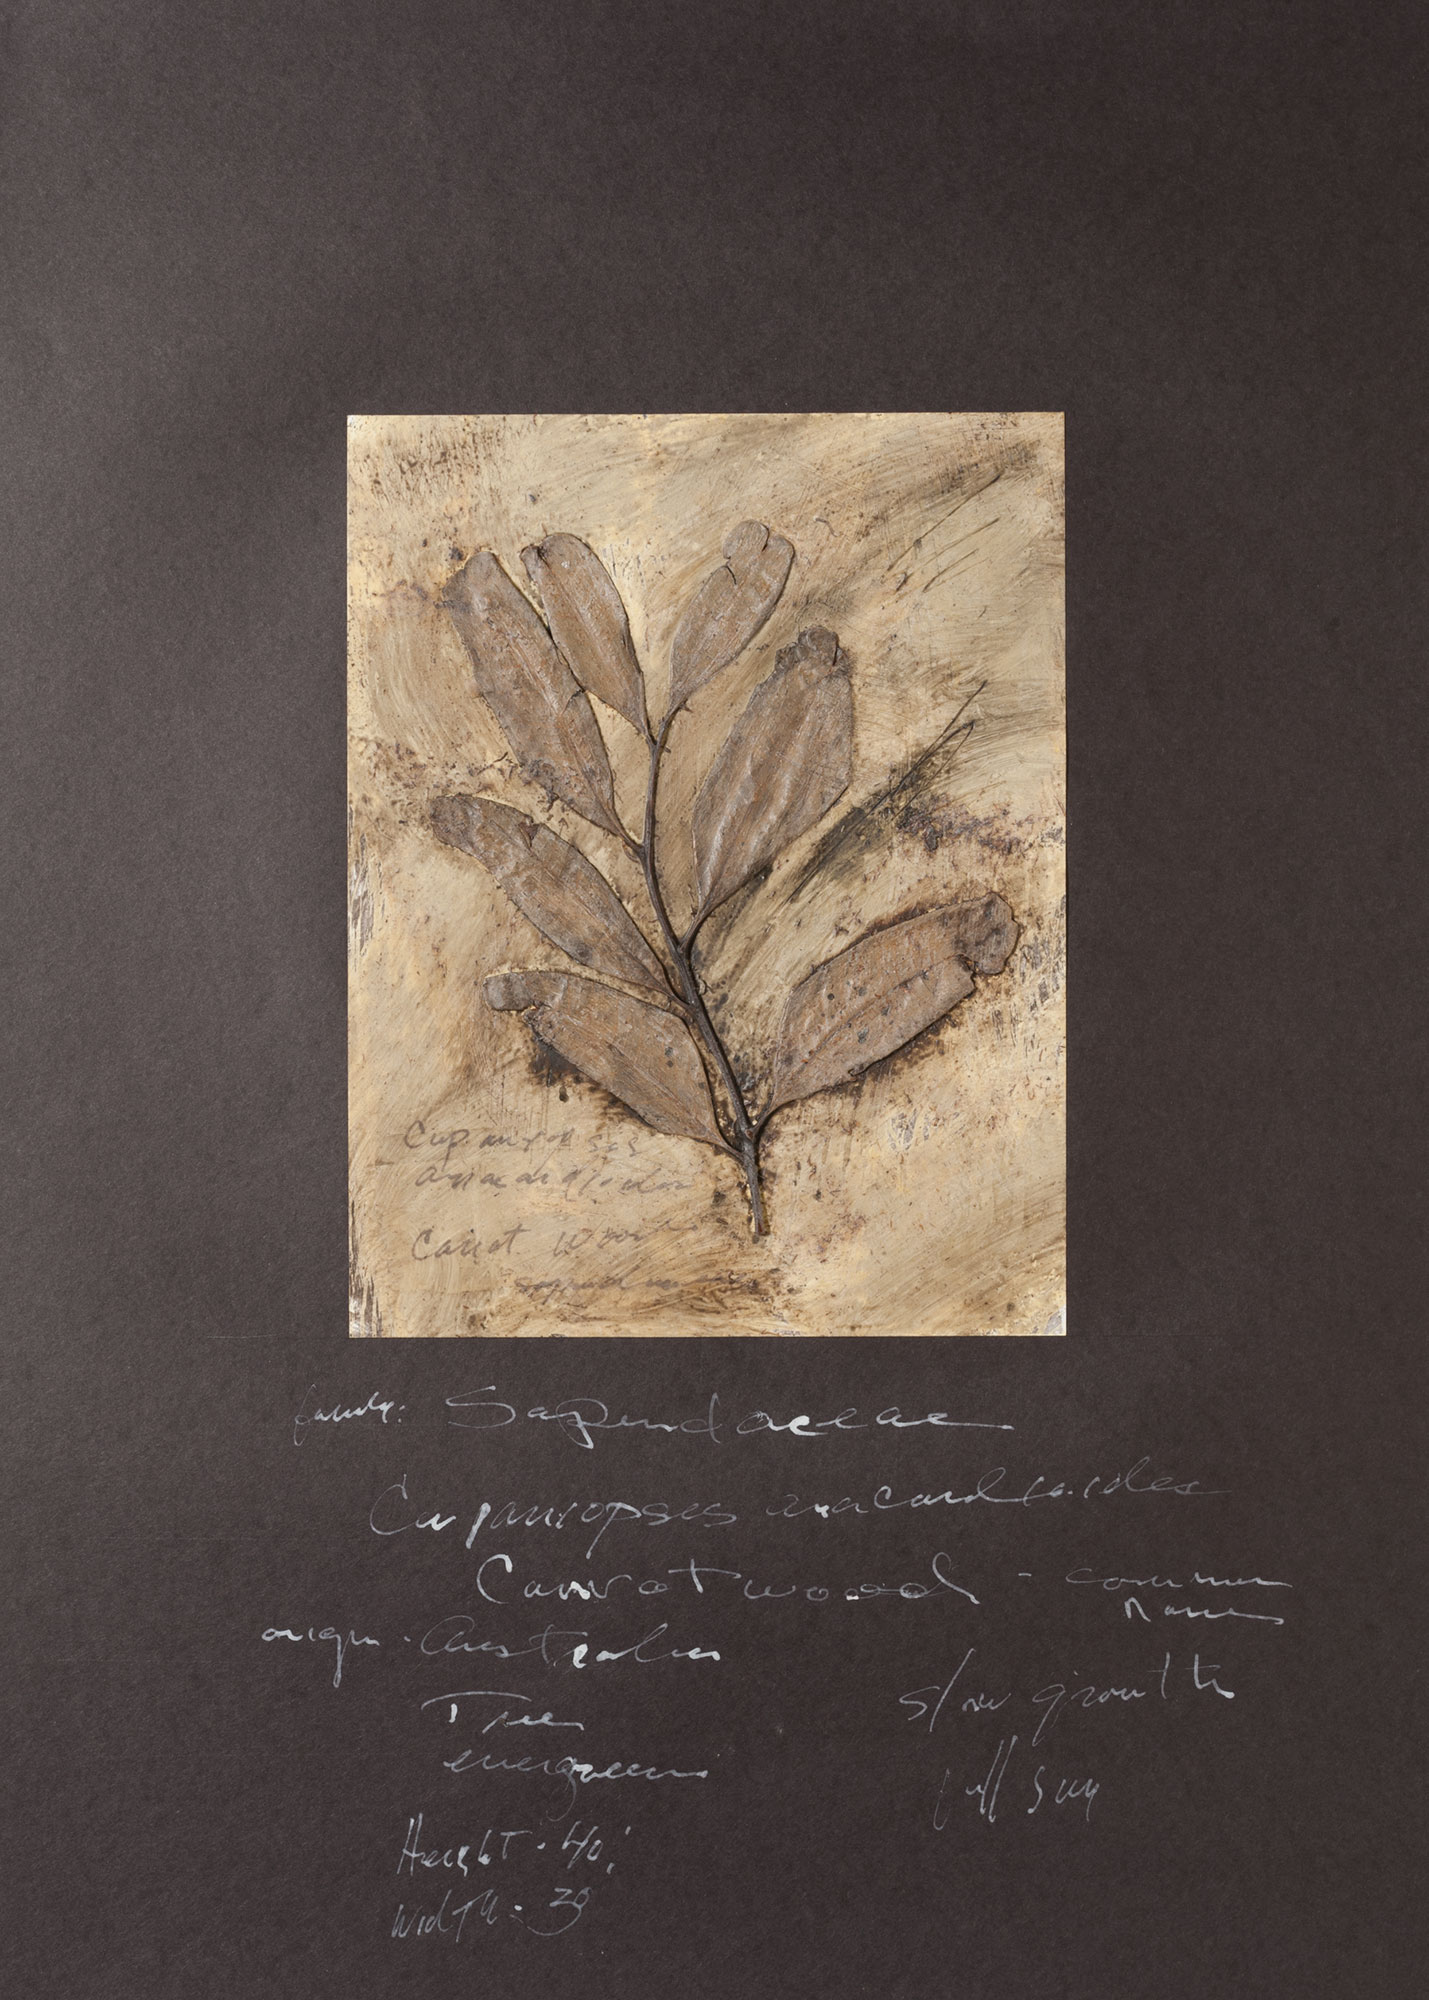 Cupaniopsis
anacardioides
Carrot Wood
family: Sapindaceae
Cupaniopsis anacardioides
Carrotwood - common
name
origin - Australia
Tree
evergreen
slow growth
full sun
Height - 40'
Width - 30